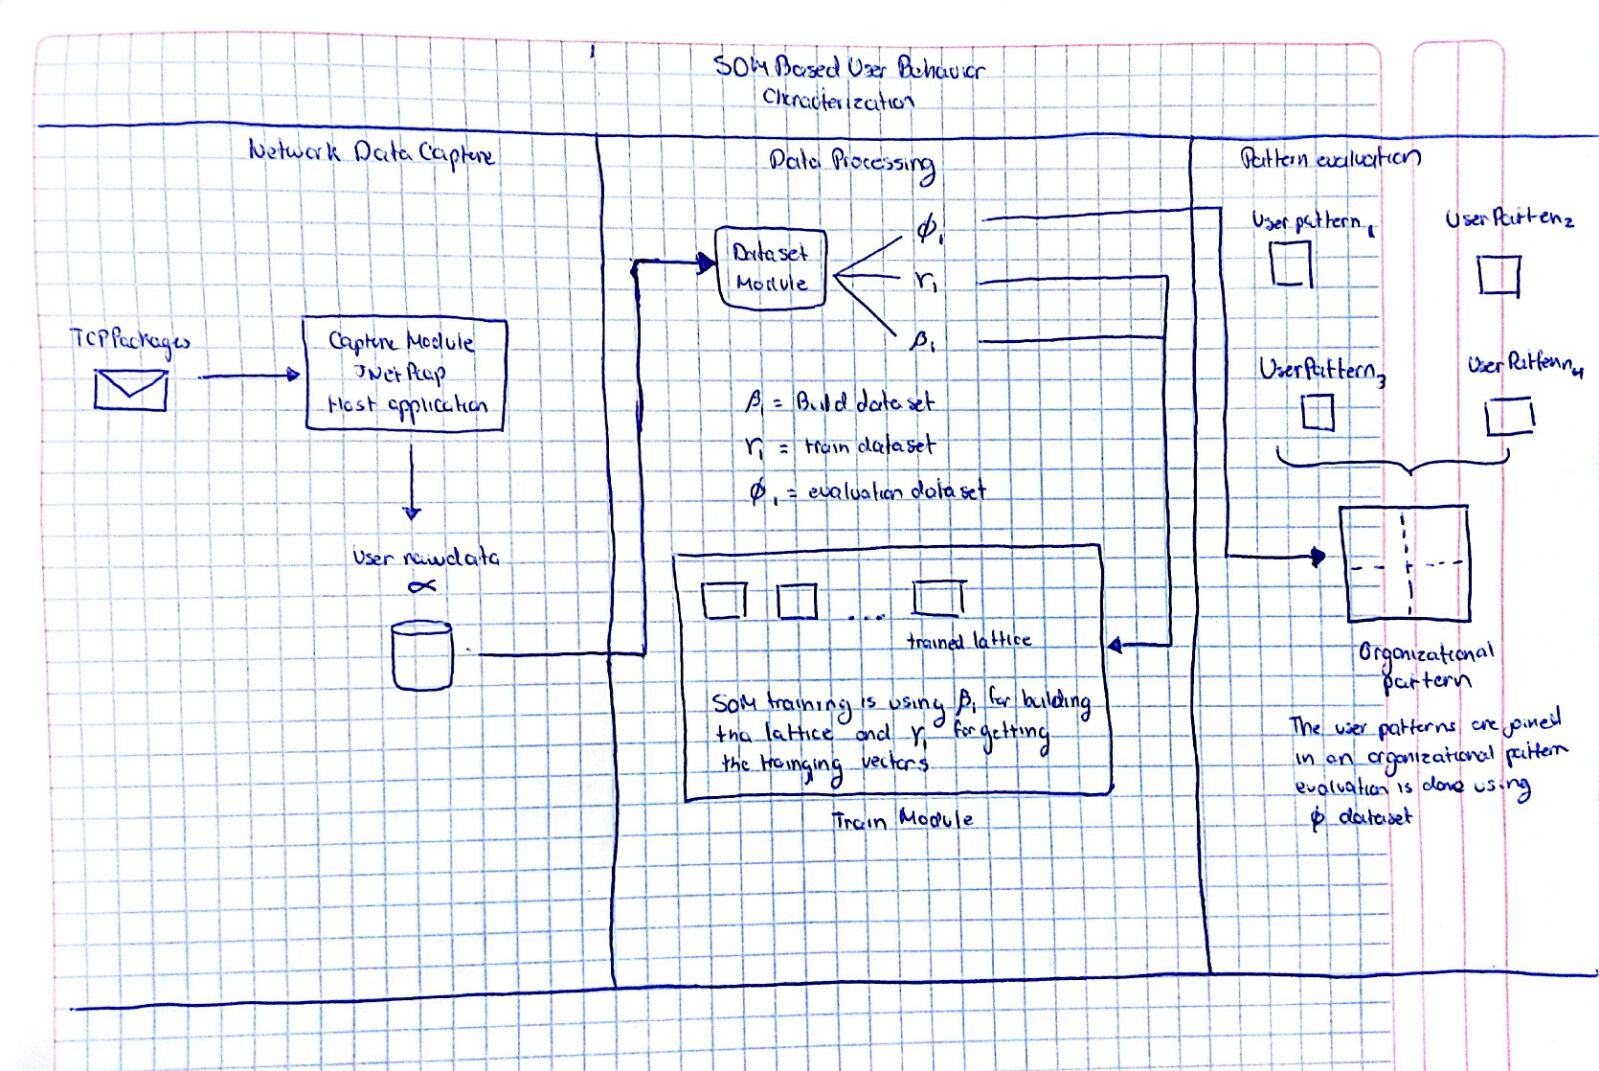 SOM Based User Behavior
Characterization
Network Data Capture
TCP Packages
Capture Module
JNetPcap
Host application
User raw data
∝
Data Processing
Dataset
Module
ϕ₁
r₁
β₁
β₁ = Build dataset
r₁ = train dataset
ϕ₁ = evaluation dataset
...
trained lattice
SOM training is using β₁ for building
tha lattice and r₁ for getting
the trainging vectors
Train Module
Pattern evaluation
User pattern₁
User Patten₂
User Pattern₃
User Pattern₄
Organizational
pattern
The user patterns are joined
in an organizational pattern
evaluation is done using
ϕ dataset